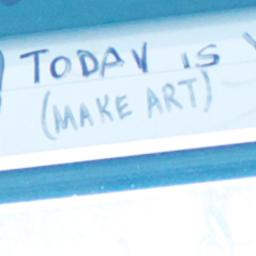 TODAY IS
(MAKE ART)